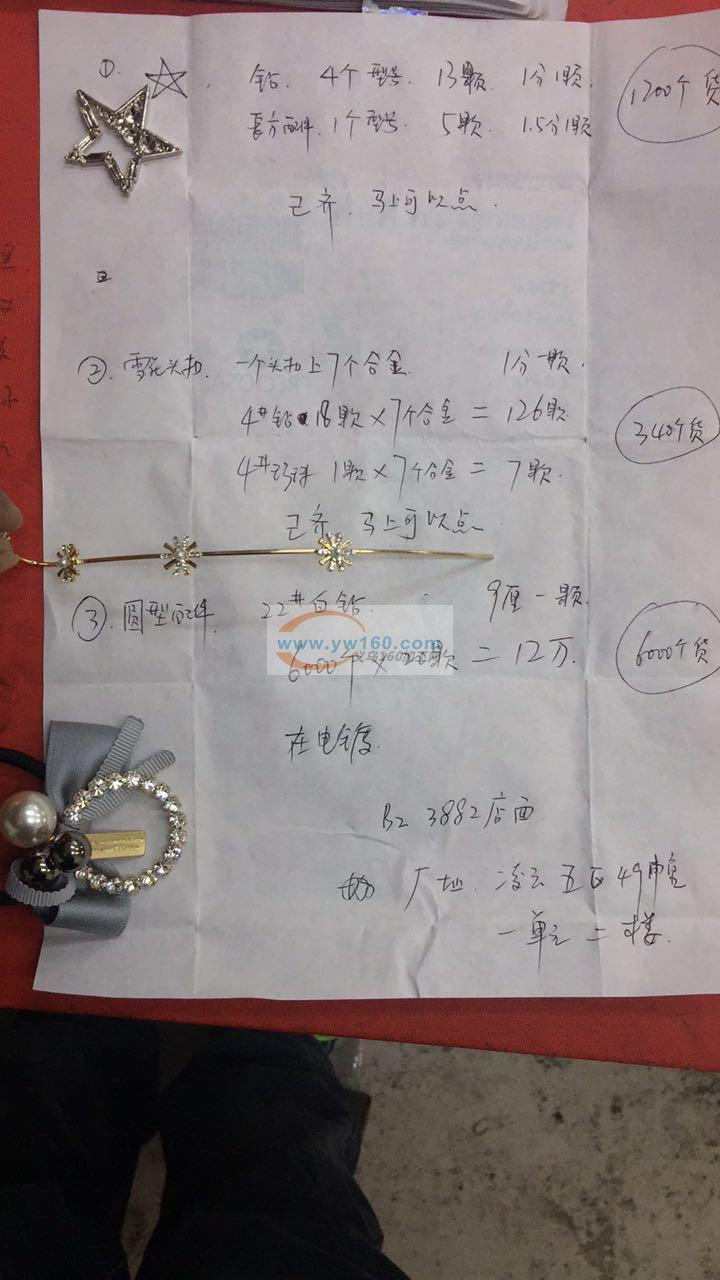 ①. 钻. 4个型号 13颗 1分1颗. 1200个货
長方配件. 1个型号. 5颗 1.5分1颗
已齐. 马上可以点.
②. 雪花头扣. 一个头扣上7个合金. 1分一颗.
4#钻 18颗×7个合金 = 126颗 340个货
4#珍珠 1颗×7个合金 = 7颗.
已齐 马上可以点
③. 圆型配件. 22#白钻. 9厘一颗.
www.yw160.com
6000个× 颗 = 12万. 6000个货
在电镀.
B2 3882店面
厂址. 凌云五区49幢
一单元二楼.